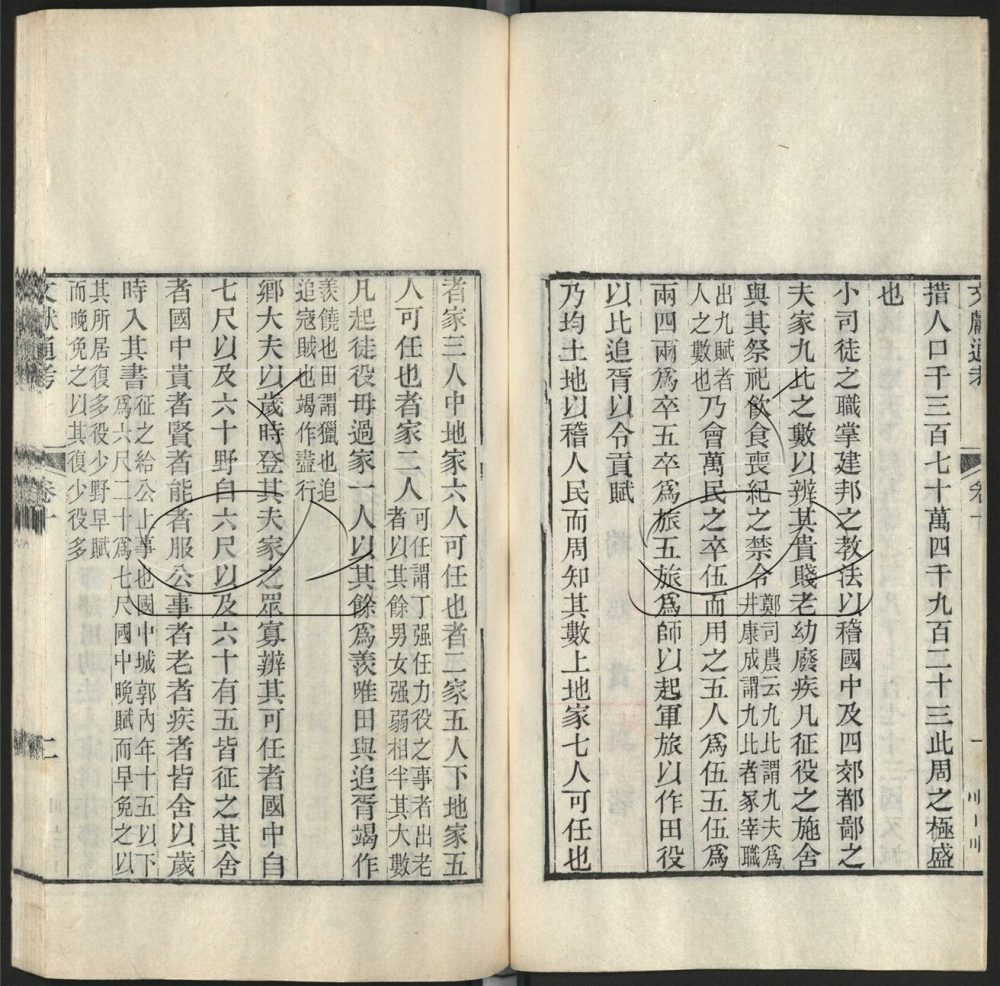 文獻通考
卷十
一
措人口千三百七十萬四千九百二十三此周之極盛
也
小司徒之職掌建邦之教法以稽國中及四郊都鄙之
夫家九比之數以辨其貴賤老幼廢疾凡征役之施舍
與其祭祀飲食喪紀之禁令鄭司農云九比謂九夫爲井康成謂九比者冢宰職
出九賦者人之數也乃會萬民之卒伍而用之五人爲伍五伍爲
兩四兩爲卒五卒爲旅五旅爲師以起軍旅以作田役
以比追胥以令貢賦
乃均土地以稽人民而周知其數上地家七人可任也
者家三人中地家六人可任也者二家五人下地家五
人可任也者家二人可任謂丁强任力役之事者出老者以其餘男女强弱相半其大數
凡起徒役毋過家一人以其餘爲羨唯田與追胥竭作
羨饒也田謂獵也追追寇賊也竭作盡行
鄉大夫以歲時登其夫家之眾寡辨其可任者國中自
七尺以及六十野自六尺以及六十有五皆征之其舍
者國中貴者賢者能者服公事者老者疾者皆舍以歲
時入其書征之給公上事也國中城郭內年十五以下爲六尺二十爲七尺國中晚賦而早免之以
其所居復多役少野早賦而晚免之以其復少役多
文獻通考
卷十
二